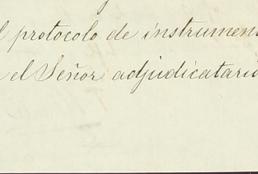 l protocolo de instrumen
el Señor adjudicatari